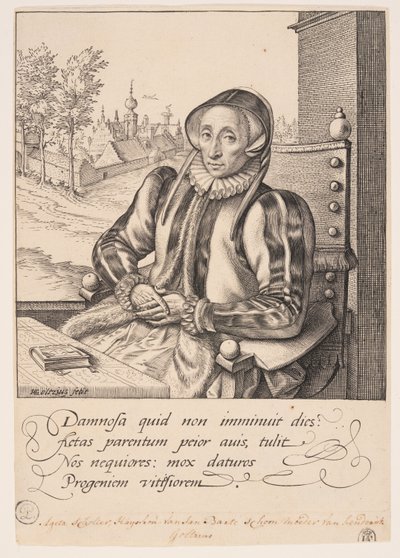 HGoltzius fecit
Damnosa quid non imminuit dies?
Aetas parentum peior auis, tulit
Nos nequiores: mox daturos
Progeniem vitiosiorem.
Ageta Scholier, Huysvrou van Jan Baets Schoon Moeder van Hendrick
Goltzius